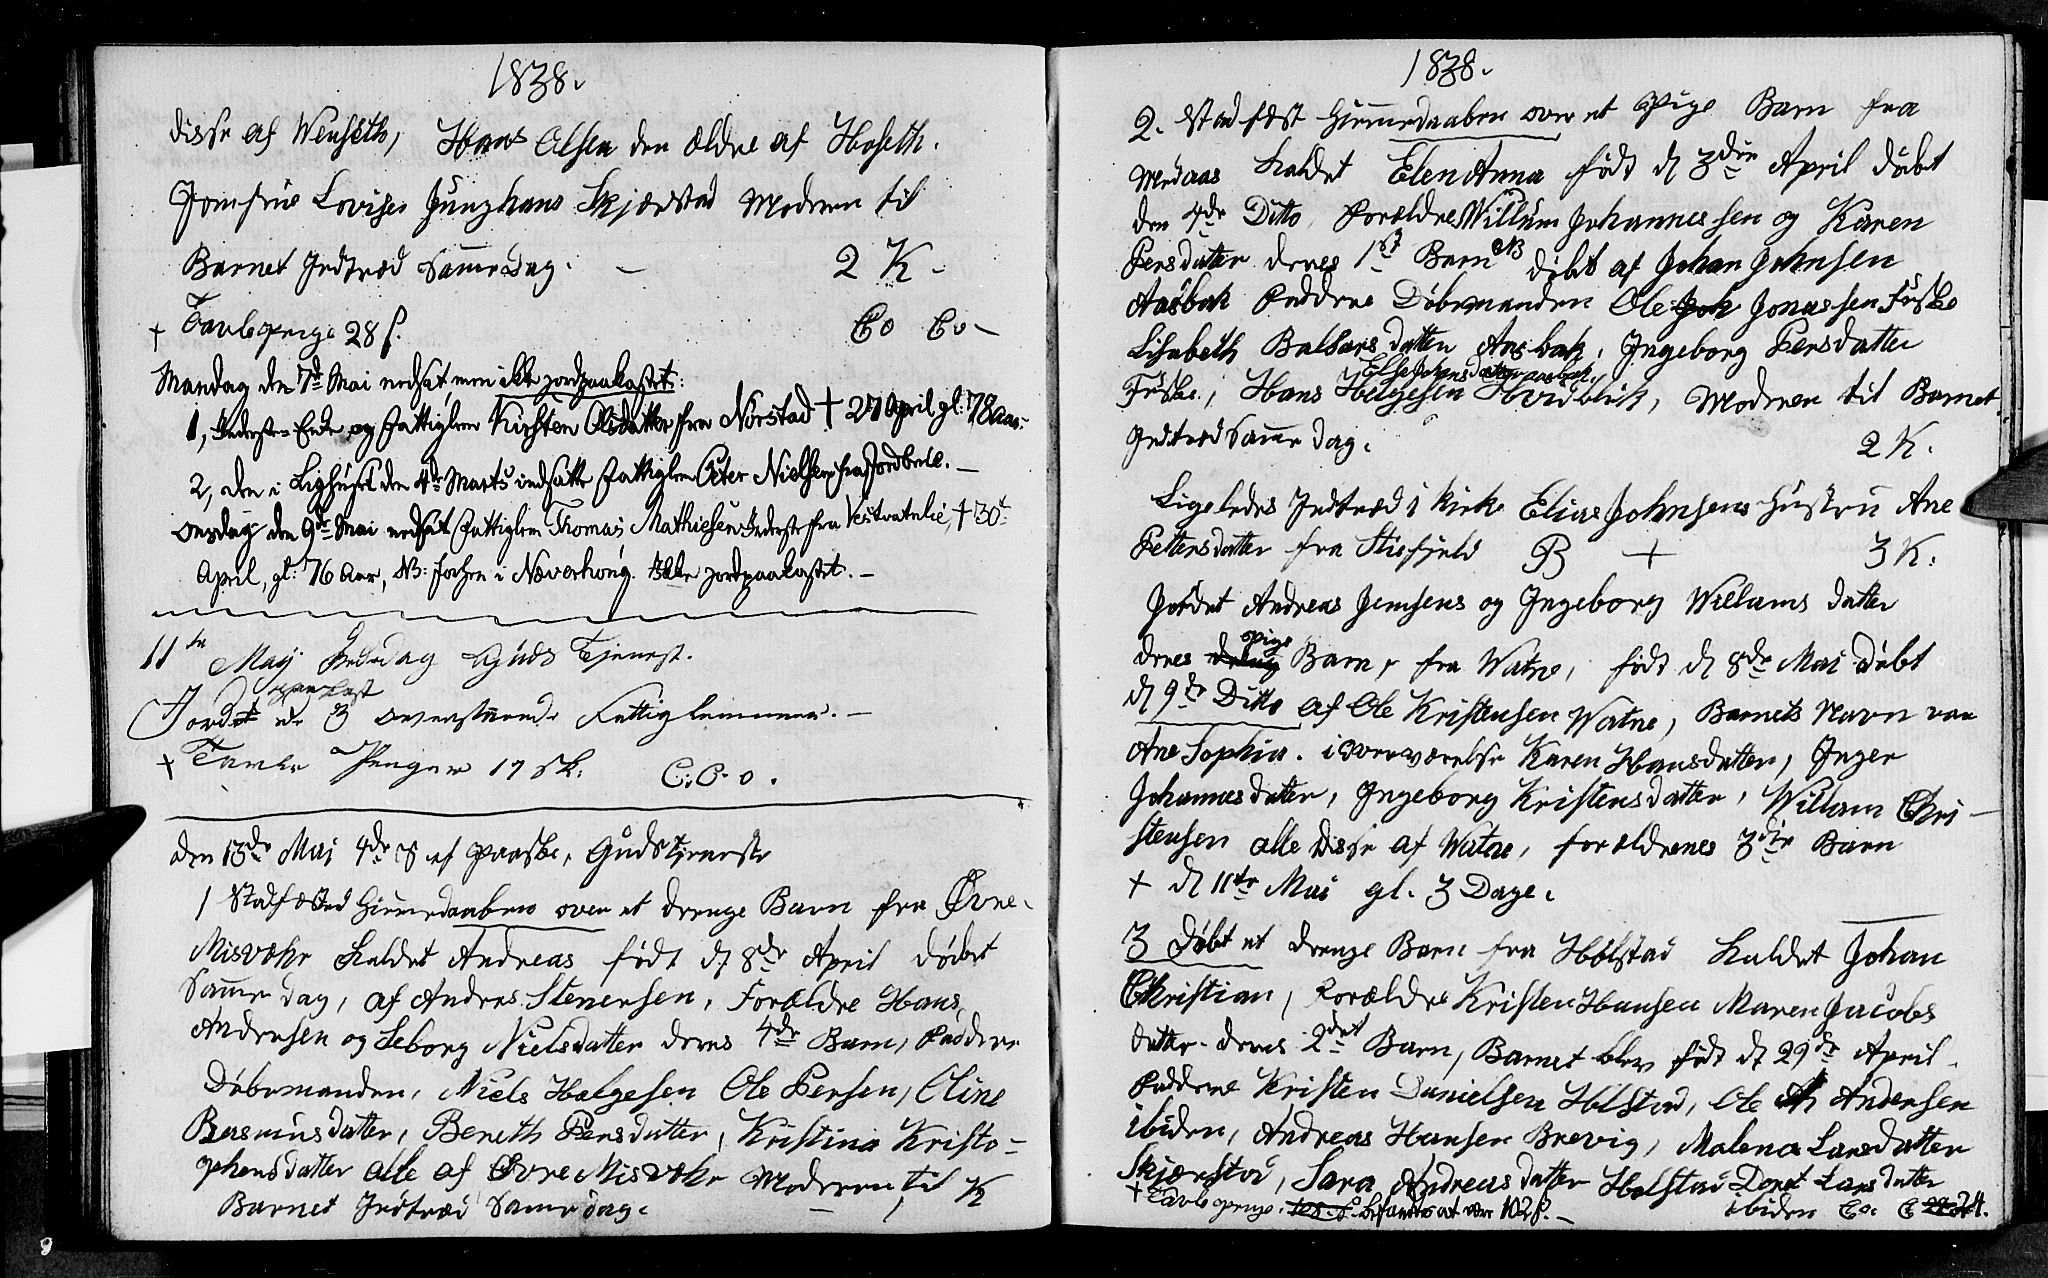 1838.
disse af Wenseth, Hans Olsen den ældre af Hoseth.
Jomfrue Lovise Junghans Skjærstad Moderen til
Barnet Indtræd Samedag. – 2 K –
+ Tavlepenge 28 s. Co Co –
Mandag den 7de Mai nedsat, men ikke jordpaakastet:
1, Inderste-Enke og Fattiglem Kirsten Olsdatter fra Nørstad † 27 April gl: 78 Aar.
2, den i Lighuset den 4de Marts indsatte Fattiglem Peter Nielsen fra Jordbroe. –
Onsdag den 9de Mai nedsat Fattiglem Thomas Mathiesen Inderste fra Vestvatnlie, † 30te
April, gl: 76 Aar, NB: Sochen i Næverhoug. Ikke jordpaakastet. –
11te May Bededag Guds Tjenest.
paakast
Jordet de 3 ovenstaaende Fattiglemmer. –
+ Tavle Penger 17 sk: C. C. o.
den 13de Mai 4de S ef Paaske, Gudstjeneste
1 Stadfæsted Hiemedaaben over et Drenge Barn fra Øvre-
Misvær kaldet Andreas født d 8de April døbet
Same dag, af Andreas Stenersen, Forældre Hans
Andersen og Seborg Nielsdatter deres 4de Barn, Faddere
Døbemanden, Niels Helgesen Ole Persen, Oline
Rasmusdatter, Bereth Persdatter, Kristina Kristo-
phersdatter alle af Øvre Misvær Moderen til
Barnet Indtræd Same dag. – , K
1838.
2. Stadfæst Hiemedaaben over et Pige Barn fra
Medaas kaldet Elen Anna født d 3die April døbt
den 4de Ditto, Forældre Willum Johannessen og Karen
Persdatter deres 1st Barn NB døbt af Johan Johnsen
Aasbak Faddere Døbemanden Ole Joh Jonassen Fuske
Lisabeth Balsarsdatter Aasbak, Ingeborg Persdatter
Else Johansdatter Aasbak
Fuske, Hans Helgesen Hvidblik, Moderen til Barnet
Indtræd Same dag. 2 K.
Ligeledes Indtræd i Kirke Elias Johnsens Hustru Ane
Pettersdatter fra Stiefjeld B + 3 K.
Jordet Andreas Jensens og Ingeborg Willams datter
pige
deres dreng Barn, fra Watne, født d 8de Mai døbt
d 9de Ditto af Ole Kristensen Watne, Barnets Navn var
Ane Sophia. i Overværelse Karen Hansdatter, Inger
Johannesdatter, Ingeborg Kristensdatter, Willam Chri-
stensen alle disse af Watne, forældrenes 3die Barn
† d 11te Mai gl. 3 Dage.
3 Døbt et Drenge Barn fra Holstad kaldet Johan
Christian, Forældre Kristen Hansen Maren Jacobs
datter deres 2det Barn, Barnet blev født d 29de April
Faddere Kristen Danielsen Holstad, Ole An Andersen
ibiden, Andreas Hansen Brevig, Malena Larsdatter
Skjærstad, Sara Andreasdatter Holstad Doret Larsdatter
+ Tavlepenge. befandtes at være 102 s. – ibiden Co. C 24.